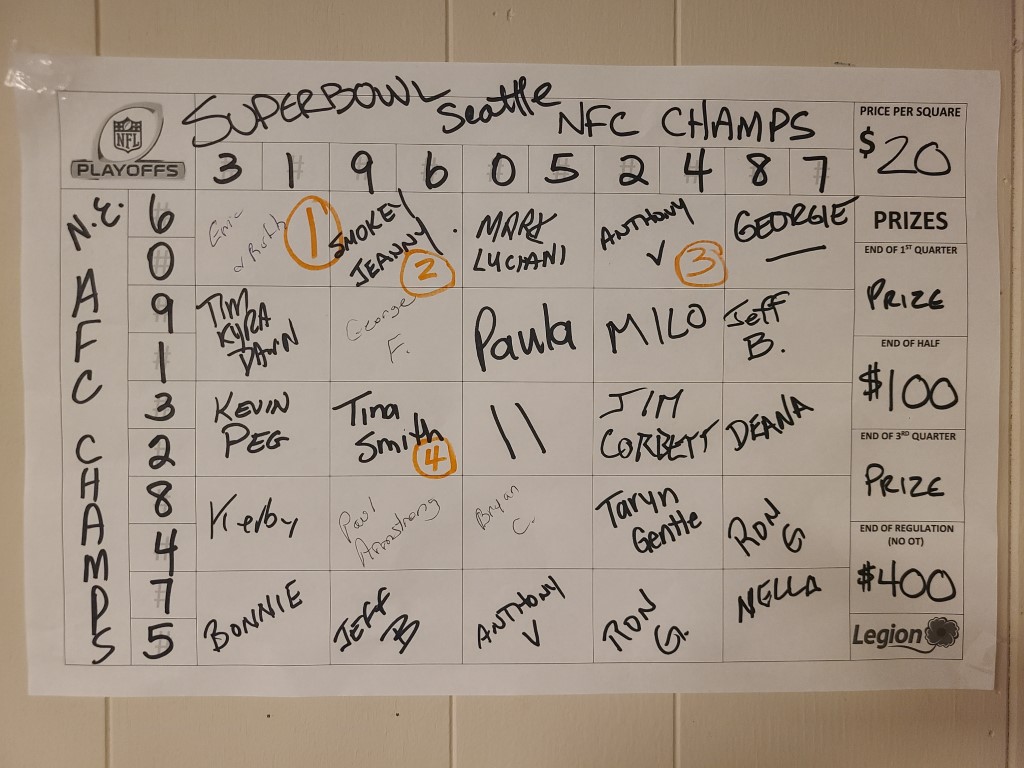 SUPERBOWL Seattle NFC CHAMPS
NFL
PLAYOFFS
PRICE PER SQUARE
$20
3 1 9 6 0 5 2 4 8 7
N.E.
AFC CHAMPS
6
0
9
1
3
2
8
4
7
5
Eric
& Ruth
1
SMOKEY
JEANNY.
2
MARK
LUCIANI
ANTHONY
V
3
GEORGIE
TIM
KYRA
DAWN
George
F.
Paula
MILO
Jeff
B.
KEVIN
PEG
Tina
Smith
4
||
JIM
CORBETT
DEANA
Kierby
Paul
Armstrong
Bryan
C.
Taryn
Gentle
RON
G
BONNIE
JEFF
B
ANTHONY
V
RON
G.
NELLA
PRIZES
END OF 1ST QUARTER
PRIZE
END OF HALF
$100
END OF 3RD QUARTER
PRIZE
END OF REGULATION
(NO OT)
$400
Legion